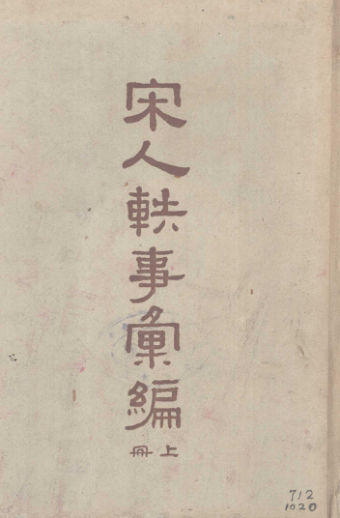 宋人軼事彙編
上冊
712
1020